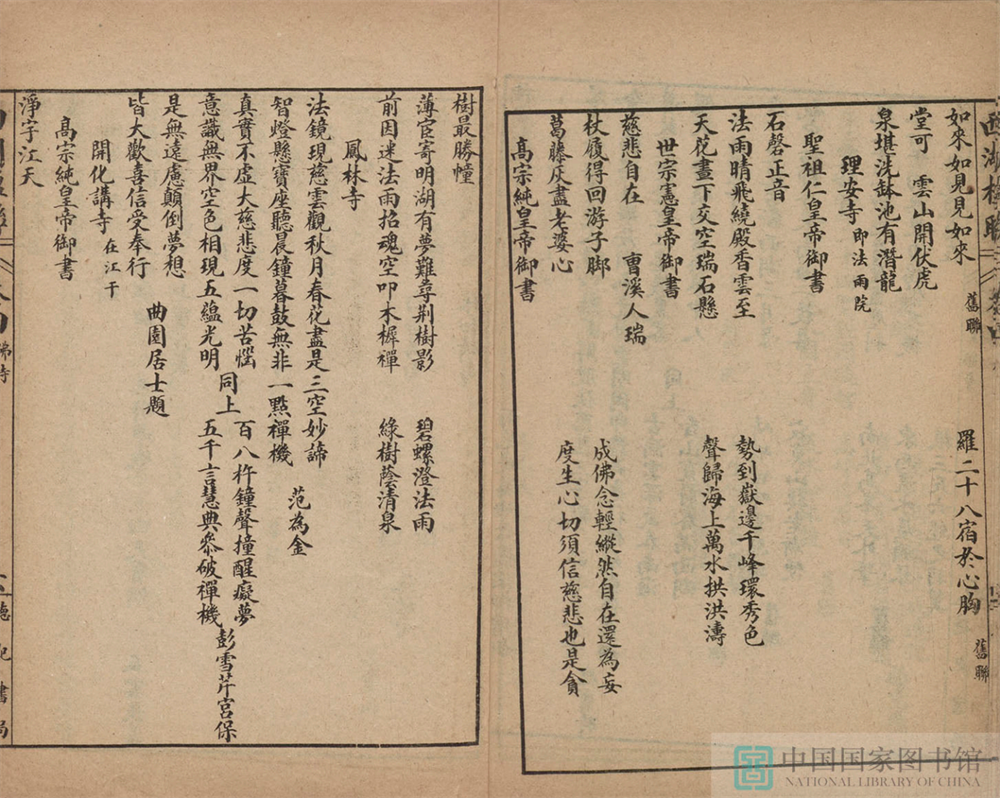 西湖楹聯 卷四
如來如見見如來 舊聯 羅二十八宿於心胸 舊聯
堂可 雲山開伏虎
泉堪洗鉢池有潛龍
理安寺 即法雨院
聖祖仁皇帝御書
石磬正音
法雨晴飛繞殿香雲至 勢到嶽邊千峰環秀色
天花晝下交空瑞石懸 聲歸海上萬水拱洪濤
世宗憲皇帝御書
慈悲自在 曹溪人瑞
杖履得回游子脚 成佛念輕縱然自在還為妄
葛藤灰盡老婆心 度生心切須信慈悲也是貪
高宗純皇帝御書
樹最勝幢
薄宦寄明湖有夢難尋荆樹影 碧螺澄法雨
前因迷法雨招魂空叩木樨禪 綠樹蔭清泉
鳳林寺
法鏡現慈雲觀秋月春花盡是三空妙諦
智燈懸寶座聽晨鐘暮鼓無非一點禪機 范為金
真實不虛大慈悲度一切苦惱 百八杵鐘聲撞醒癡夢
意識無界空色相現五蘊光明 同上 五千言慧典叅破禪機 彭雪芹宮保
是無遠慮顛倒夢想
皆大歡喜信受奉行 曲園居士題
開化講寺 在江干
高宗純皇帝御書
淨宇江天
佛寺 德記書局
中国国家图书馆
NATIONAL LIBRARY OF CHINA